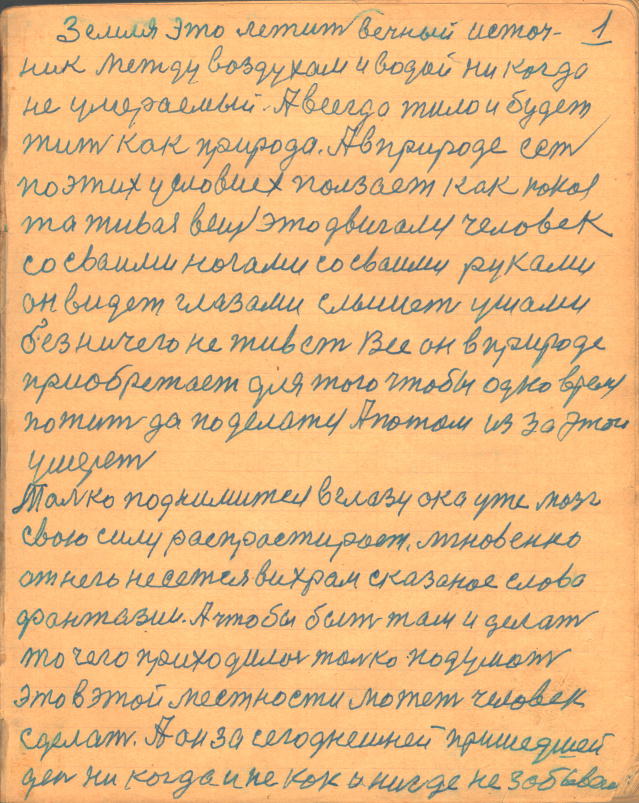 1
Земля это летит вечный источ-
ник между воздухам и водой ни когда
не умераемый. А всегда жило и будет
жит как природа. А в природе сет
по этих условиех ползает как
та живая вещ это двигалу человек
со сваими ногами со сваими руками
он видет глазами слышет ушами
без ничего не живет Все он в природе
приобретает для того чтобы одно врем
пожит да поделаты А потом из за этого
умерет
Толко поднимится в глазу ока уже мозг
свою силу распрастирает. мгновенно
от него несется вихрам сказаное слова
фантазии. А чтобы быт там и делат
то чего приходилос толко подумат
это в этой местности может человек
сделат. А он за сегоднешней пришедшей
ден ни когда и не как и нигде не забывает